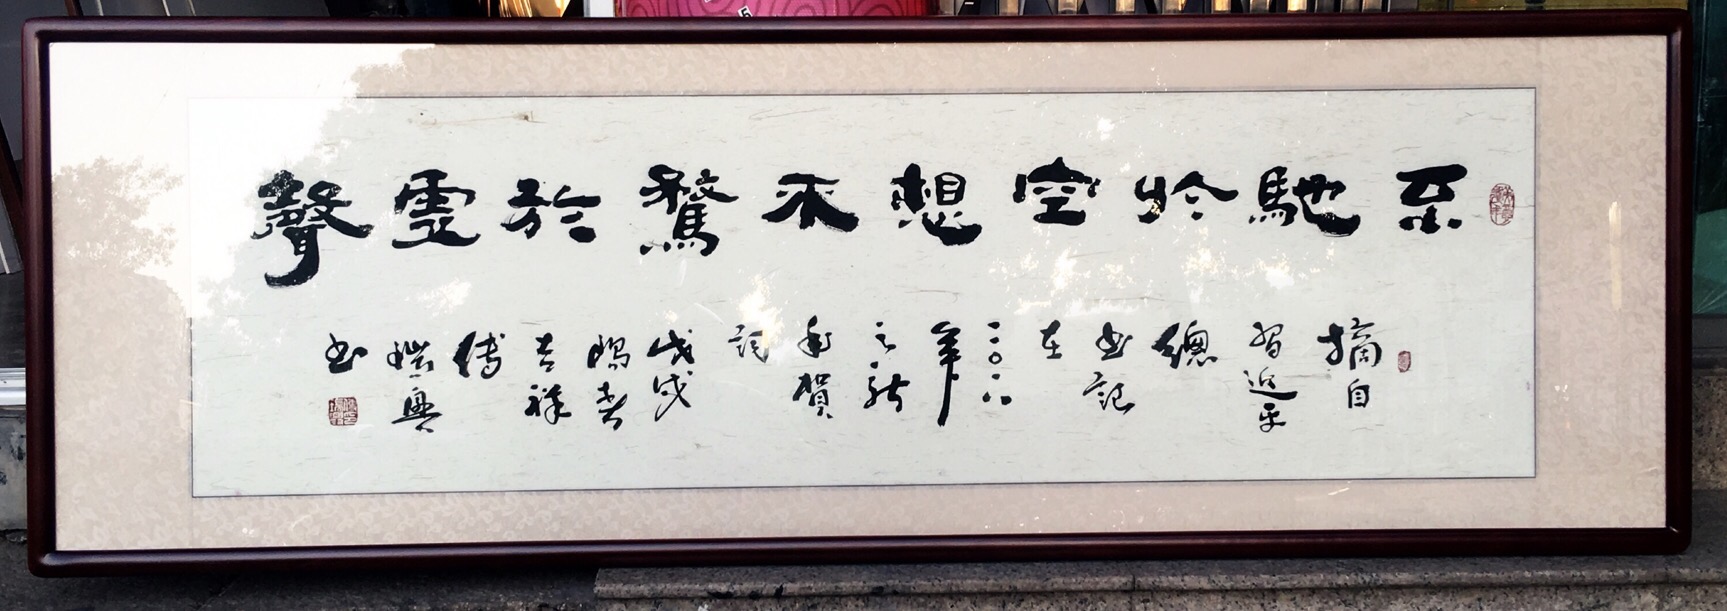 不馳於空想不騖於虛聲
摘自
習近平
總
書記
在
二〇一八
年
之新
年賀
詞
戊戌
吉祥
傅
書